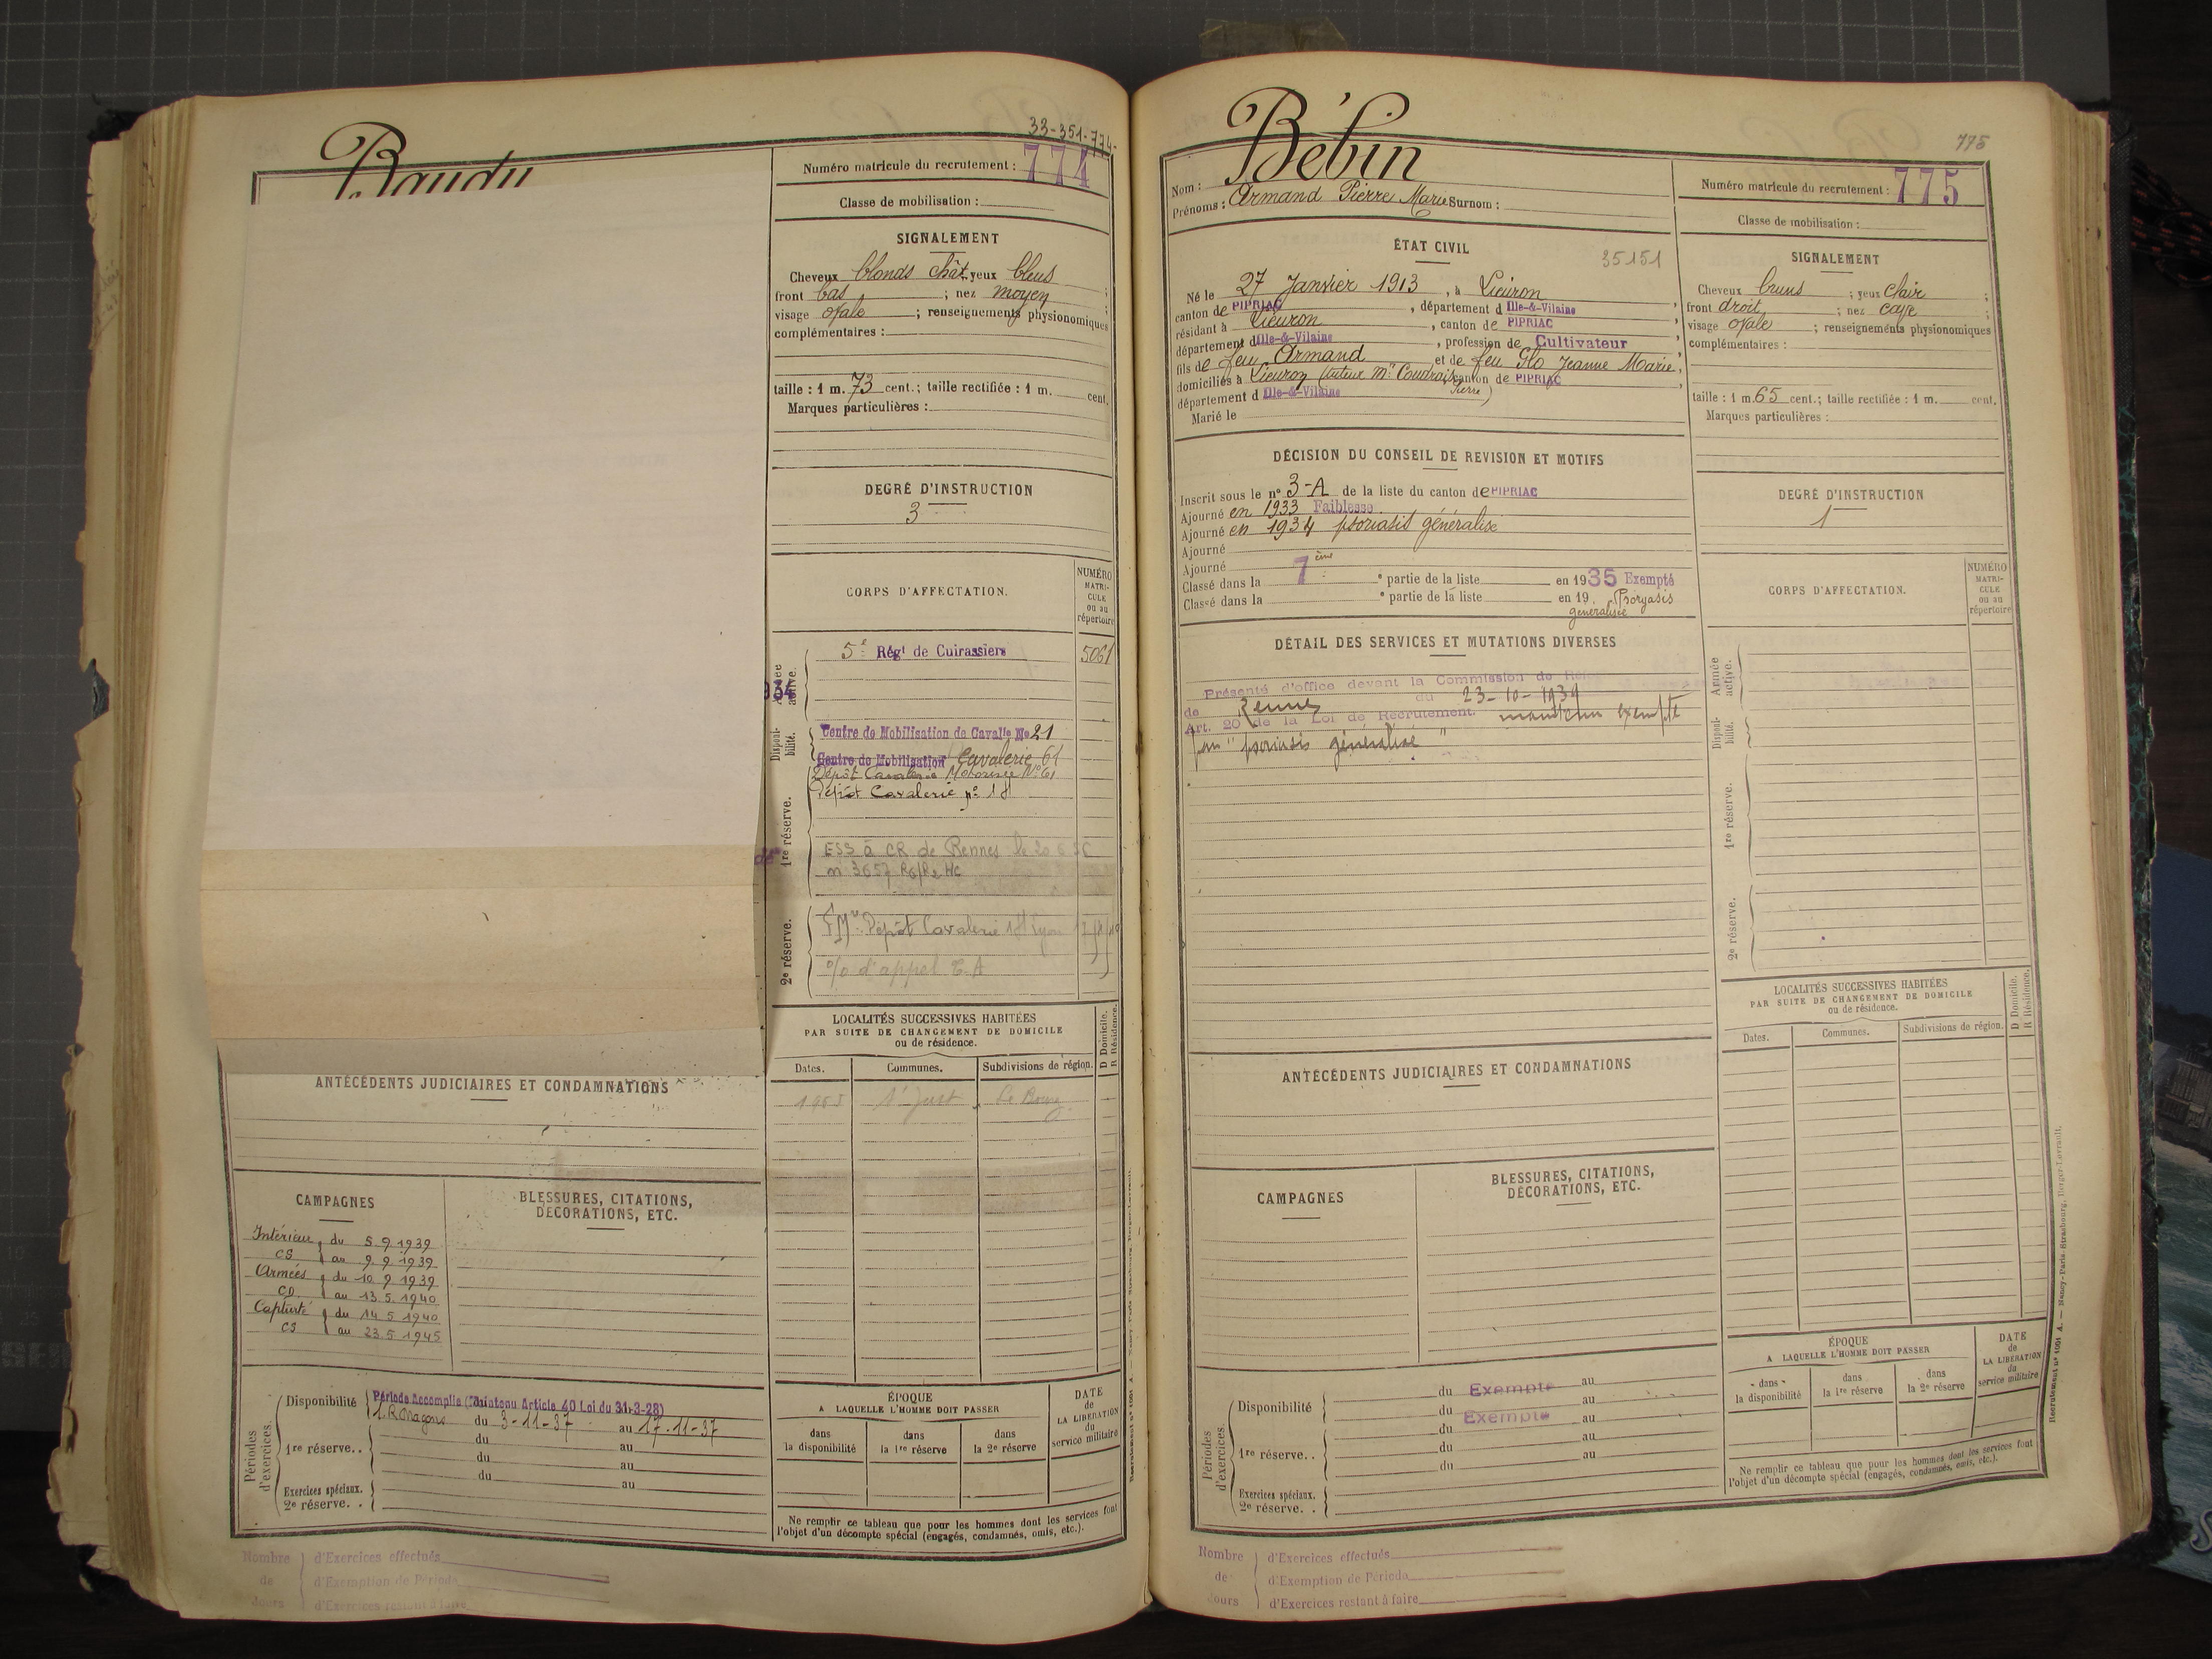 Baudu
33-351-774-
Numéro matricule du recrutement : 774
Classe de mobilisation :
SIGNALEMENT
Cheveux blonds chât yeux bleus ;
front bas ; nez moyen ;
visage ovale ; renseignements physionomiques
complémentaires :
taille : 1 m. 73 cent. ; taille rectifiée : 1 m. cent.
Marques particulières :
DEGRÉ D'INSTRUCTION
3
CORPS D'AFFECTATION.
NUMÉRO
MATRI-
CULE
ou au
répertoire
Armée active.
5e Régt de Cuirassiers 5061
934
Disponi-
bilité.
Centre de Mobilisation de Cavalie No 21
Centre de Mobilisation Cavalerie 61
Dépôt Cavalerie Motorisée No 61
Dépôt Cavalerie no 18
1re réserve.
ESS à CR de Rennes le 20 6
n 3657
2e réserve.
Dépôt Cavalerie 18
d'appel T. A
LOCALITÉS SUCCESSIVES HABITÉES
PAR SUITE DE CHANGEMENT DE DOMICILE
ou de résidence.
D Domicile.
R Résidence.
Dates. Communes. Subdivisions de région.
St Just Le Bourg
ANTÉCÉDENTS JUDICIAIRES ET CONDAMNATIONS
CAMPAGNES
BLESSURES, CITATIONS,
DÉCORATIONS, ETC.
Intérieur du 5 9 1939
CS au 9 9 1939
Armées du 10 9 1939
CD au 13 5 1940
Capturé du 14 5 1940
CS au 23 5 1945
Périodes
d'exercices.
Disponibilité
Période Accomplie Article 40 Loi du 31-3-28)
Dragons du 3-11-37 au 17-11-37
1re réserve. . du au
du au
du au
Exercices spéciaux.
2e réserve. .
ÉPOQUE
A LAQUELLE L'HOMME DOIT PASSER
dans
la disponibilité
dans
la 1re réserve
dans
la 2e réserve
DATE
de
LA LIBÉRATION
du
service militaire
Ne remplir ce tableau que pour les hommes dont les services font
l'objet d'un décompte spécial (engagés, condamnés, omis, etc.).
Nombre d'Exercices effectués
de d'Exemption de Période
Jours d'Exercices restant à faire
775
Nom : Bébin
Prénoms : Armand Pierre Marie Surnom :
Numéro matricule du recrutement : 775
Classe de mobilisation :
ÉTAT CIVIL
35151
Né le 27 Janvier 1913, à Lieuron,
canton de PIPRIAC, département d Ille-&-Vilaine
résidant à Lieuron, canton de PIPRIAC,
département d Ille-&-Vilaine, profession de Cultivateur
fils de feu Armand et de feu Glo Jeanne Marie,
domiciliés à Lieuron (tuteur Mr Coudrais Pierre) canton de PIPRIAC,
département d Ille-&-Vilaine
Marié le
SIGNALEMENT
Cheveux bruns ; yeux clair ;
front droit ; nez cave ;
visage ovale ; renseignements physionomiques
complémentaires :
taille : 1 m. 65 cent. ; taille rectifiée : 1 m. cent.
Marques particulières :
DÉCISION DU CONSEIL DE REVISION ET MOTIFS
Inscrit sous le no 3-A de la liste du canton de PIPRIAC
Ajourné en 1933 Faiblesse
Ajourné en 1934 psoriasis généralisé
Ajourné
Ajourné
Classé dans la 7ème partie de la liste en 1935 Exempté
Classé dans la e partie de la liste en 19 . Psoryasis
généralisée
DEGRÉ D'INSTRUCTION
1
CORPS D'AFFECTATION.
NUMÉRO
MATRI-
CULE
ou au
répertoire
DÉTAIL DES SERVICES ET MUTATIONS DIVERSES
Présenté d'office devant la Commission de
de Rennes du 23-10-1939
Art. 20 de la Loi de Recrutement. maintenu exempté
pour "psoriasis généralisé"
Armée
active.
Disponi-
bilité.
1re réserve.
2e réserve.
LOCALITÉS SUCCESSIVES HABITÉES
PAR SUITE DE CHANGEMENT DE DOMICILE
ou de résidence.
D Domicile.
R Résidence.
Dates. Communes. Subdivisions de région.
ANTÉCÉDENTS JUDICIAIRES ET CONDAMNATIONS
CAMPAGNES
BLESSURES, CITATIONS,
DÉCORATIONS, ETC.
Périodes
d'exercices.
Disponibilité du Exempté au
du Exempté au
1re réserve. . du au
du au
du au
Exercices spéciaux.
2e réserve. .
ÉPOQUE
A LAQUELLE L'HOMME DOIT PASSER
dans
la disponibilité
dans
la 1re réserve
dans
la 2e réserve
DATE
de
LA LIBÉRATION
du
service militaire
Ne remplir ce tableau que pour les hommes dont les services font
l'objet d'un décompte spécial (engagés, condamnés, omis, etc.).
Recrutement no 1091 A. — Nancy-Paris-Strasbourg, Berger-Levrault.
Nombre d'Exercices effectués
de d'Exemption de Période
Jours d'Exercices restant à faire